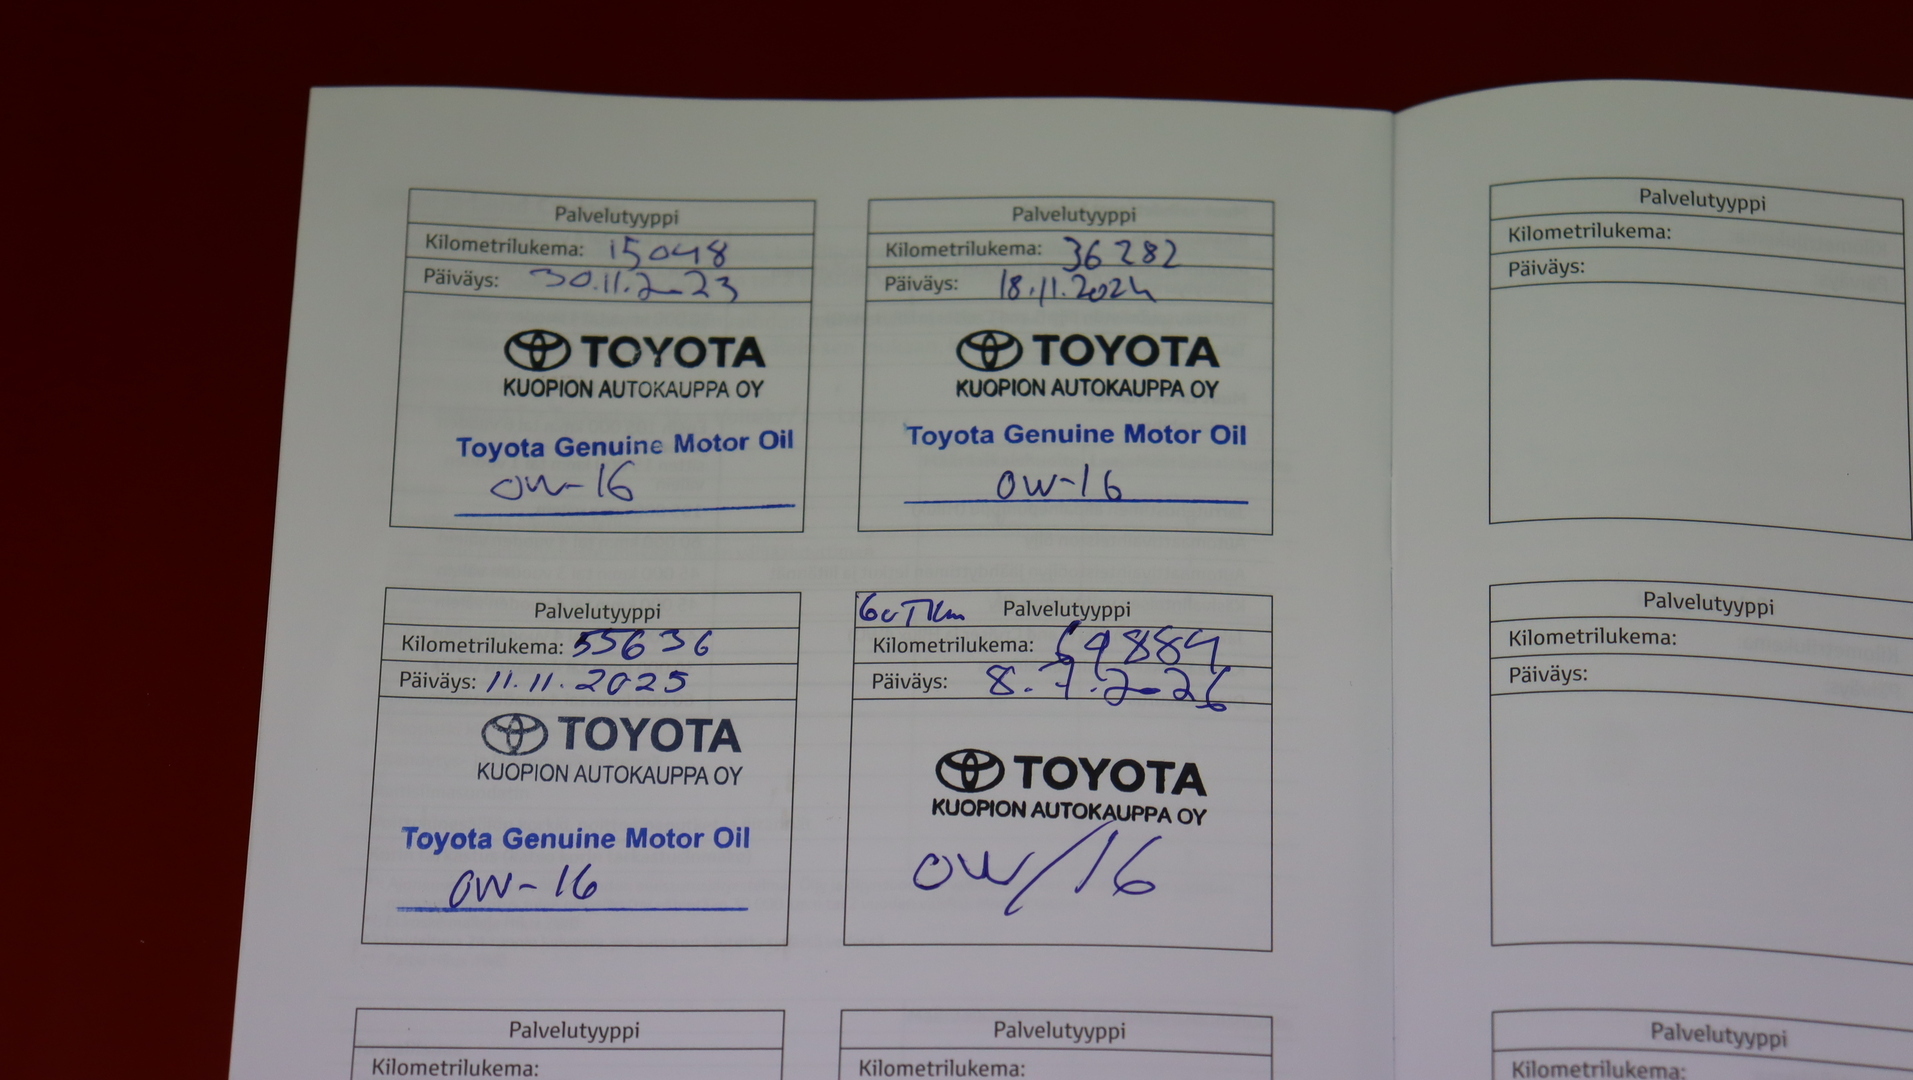 Palvelutyyppi
Kilometrilukema: 15048
Päiväys: 30.11.2023
TOYOTA
KUOPION AUTOKAUPPA OY
Toyota Genuine Motor Oil
0W-16
Palvelutyyppi
Kilometrilukema: 36 282
Päiväys: 18.11.2024
TOYOTA
KUOPION AUTOKAUPPA OY
Toyota Genuine Motor Oil
0W-16
Palvelutyyppi
Kilometrilukema:
Päiväys:
Palvelutyyppi
Kilometrilukema: 55636
Päiväys: 11.11.2025
TOYOTA
KUOPION AUTOKAUPPA OY
Toyota Genuine Motor Oil
0W-16
60Tkm Palvelutyyppi
Kilometrilukema: 69884
Päiväys: 8.7.2026
TOYOTA
KUOPION AUTOKAUPPA OY
0W/16
Palvelutyyppi
Kilometrilukema:
Päiväys:
Palvelutyyppi
Kilometrilukema:
Palvelutyyppi
Kilometrilukema:
Palvelutyyppi
Kilometrilukema: